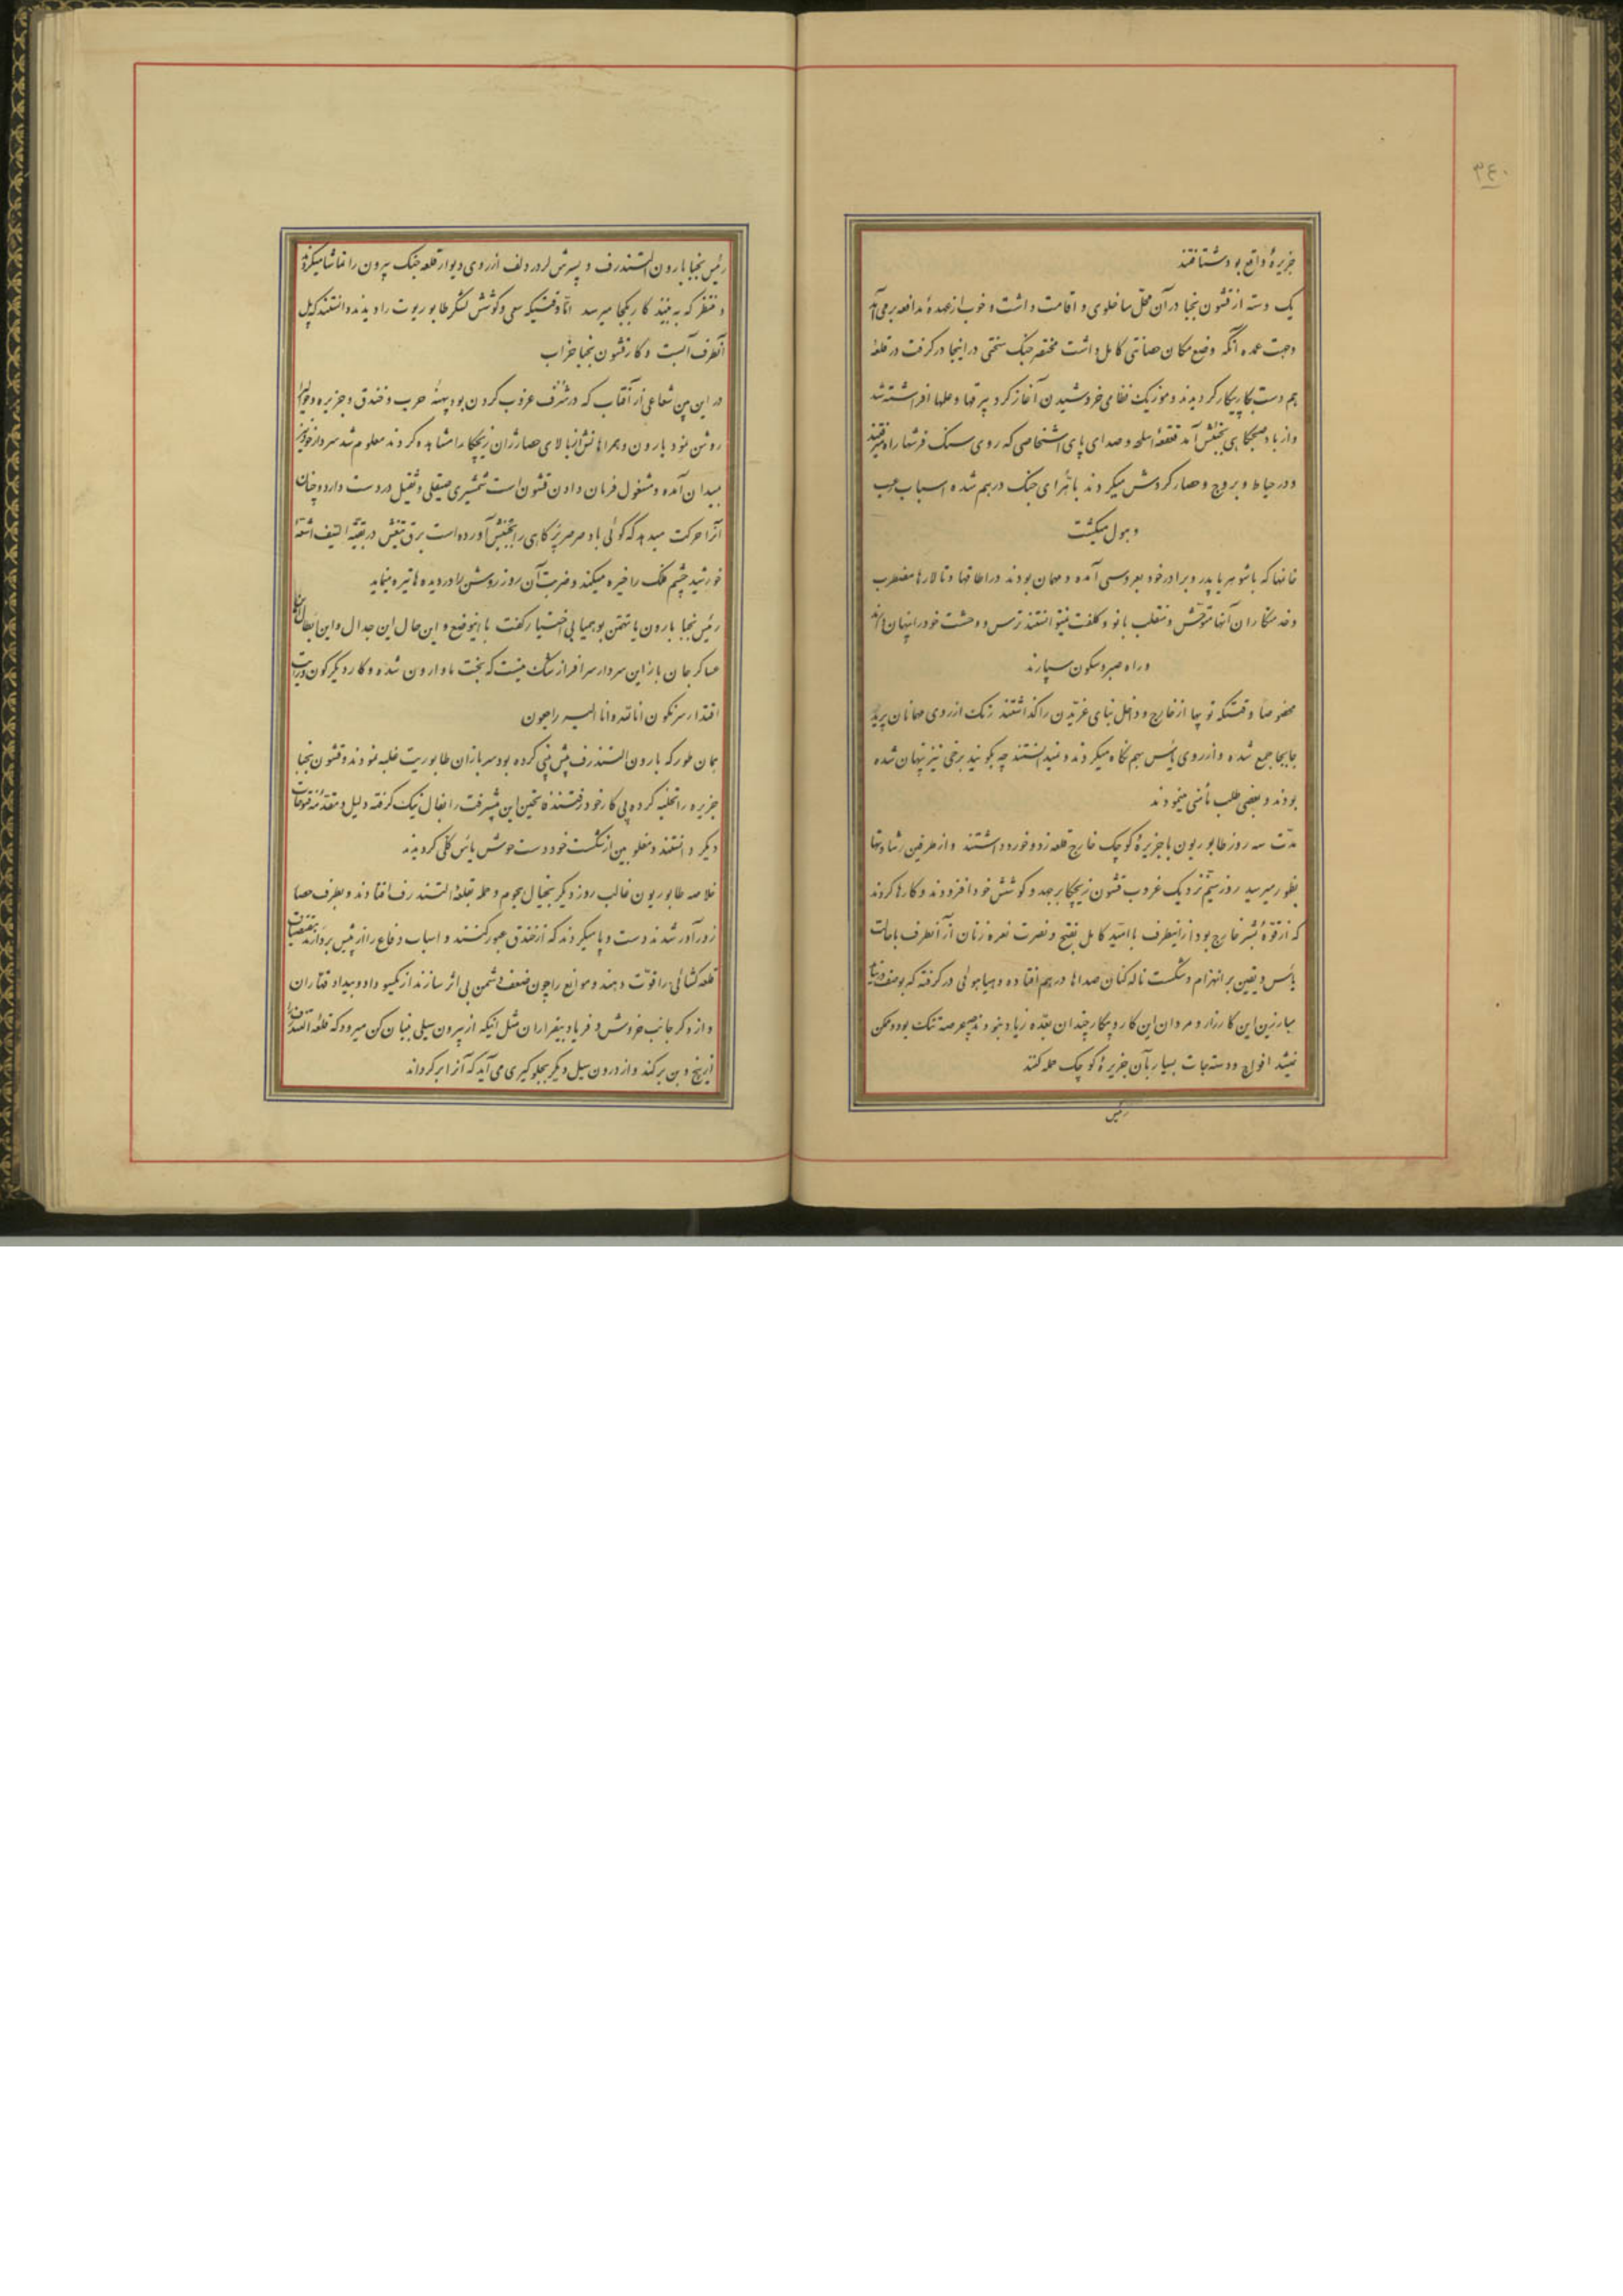 ۳۴۰
جزیرهٔ واقع بود شتافتند
یک دسته از قشون نجبا در آن محل ساخلوی و اقامت داشت و خوب از عهدهٔ مدافعه برمی‌آمد
و جهت عمده آنکه وضع مکان حصانتی کامل داشت مختصر جنک سختی در اینجا درگرفت در قلعه
هم دست بکار پیکار گردیدند و موزیک نظامی خروشیدن آغاز کرد بیرقها و علمها افراشته شد
و از باد صبحگاهی بجنبش آمد قعقعهٔ اسلحه و صدای پای اشخاصی که روی سنک فرشها راه میرفتند
و در حیاط و بروج و حصار گردش میکردند با نعرای جنک درهم شده اسباب رعب
و هول میگشت
خانمها که با شوهر یا پدر و برادر خود بعروسی آمده و مهمان بودند در اطاقها و تالارها مضطرب
و خدمتکاران آنها متوحش و منقلب بانو و کلفت نمیتوانستند ترس و وحشت خود را پنهان دارند
و راه صبر و سکون سپارند
مخصوصاً وقتیکه توپها از خارج و داخل بنای غریدن را گذاشتند رنک از روی مهمانان پریده
جابجا جمع شده و از روی یأس بهم نگاه میکردند و نمیدانستند چه بگویند برخی نیز پنهان شده
بودند و بعضی طلب مأمنی مینمودند
مدت سه روز طابوریون با جزیرهٔ کوچک خارج قلعه زد و خورد داشتند و از طرفین رشادتها
بظهور میرسید روز سیّم نزدیک غروب قشون زیچکا بر جهد و کوشش خود افزودند و کارها کردند
که از قوهٔ بشر خارج بود از اینطرف با امید کامل بفتح و نصرت نعره زنان از آنطرف با حالت
یأس و یقین بر انهزام و شکست ناله کنان صداها درهم افتاده و هیاهوئی در گرفته که بوصف نیاید
مبارزین این کارزار و مردان این کار و پیکار چندان بعدّه زیاد نبودند چه عرصه تنک بود و ممکن
نمیشد افواج و دستجات بسیار بآن جزیرهٔ کوچک حمله کنند
رئیس
رئیس نجبا بارون الستندرف و پسرش لرد ردلف از روی دیوار قلعه جنک بیرون را تماشا میکردند
و منتظر که به بینند کار بکجا میرسد امّا وقتیکه سعی و کوشش لشکر طابوریوت را دیدند دانستند که پل
آنطرف آبست و کار قشون نجبا خراب
در این بین شعاعی از آفتاب که در شرف غروب کردن بود پهنهٔ حرب و خندق و جزیره و دیوار را
روشن نمود بارون و همراهانش از بالای حصار ژان زیچکا را مشاهده کردند معلوم شد سردار خود نیز
بمیدان آمده و مشغول فرمان دادن قشون است شمشیری صیقلی و ثقیل در دست دارد و چنان
آنرا حرکت میدهد که گوئی باد صرصر پر کاهی را بجنبش آورده است برق تیغش در بقیهٔ اشعهٔ
خورشید چشم فلک را خیره میکند و ضربت آن روز روشن را در دیده‌ها تیره مینماید
رئیس نجبا بارون یا تهمتن بوهمیا بی‌اختیار گفت با اینوضع و این حال این جدال و این ابطال
عساکر جان باز این سردار سرافراز شک نیست که بخت ما وارون شده و کار دیگرگون و رایت
اقتدار سرنگون انا لله و انا الیه راجعون
همان طور که بارون الستندرف پیش بینی کرده بود سربازان طابوریت غلبه نمودند و قشون نجبا
جزیره را تخلیه کرده پی کار خود رفتند فاتحین این پیشرفت را بفال نیک گرفته دلیل و مقدمهٔ فتوحات
دیگر دانستند و مغلوبین از شکست خود دست خوش یأس کلی گردیدند
خلاصه طابوریون غالب روز دیگر بخیال هجوم و حمله بقلعهٔ الستندرف افتادند و بطرف حصار
زورآور شدند دست و پا میکردند که از خندق عبور کنند و اسباب دفاع را از پیش بردارند
قلعه گشائی را قوّت دهند و موانع را چون ضعف دشمن بی اثر سازند از یکسو داد و بیداد قتاران
و از دگر جانب خروش و فریاد بیقراران مثل اینکه از بیرون سیلی بنیان کن میرود که قلعهٔ الستندرف را
از بیخ و بن برکند و از درون سیل دیگر بجلوگیری می‌آید که آنرا برگرداند